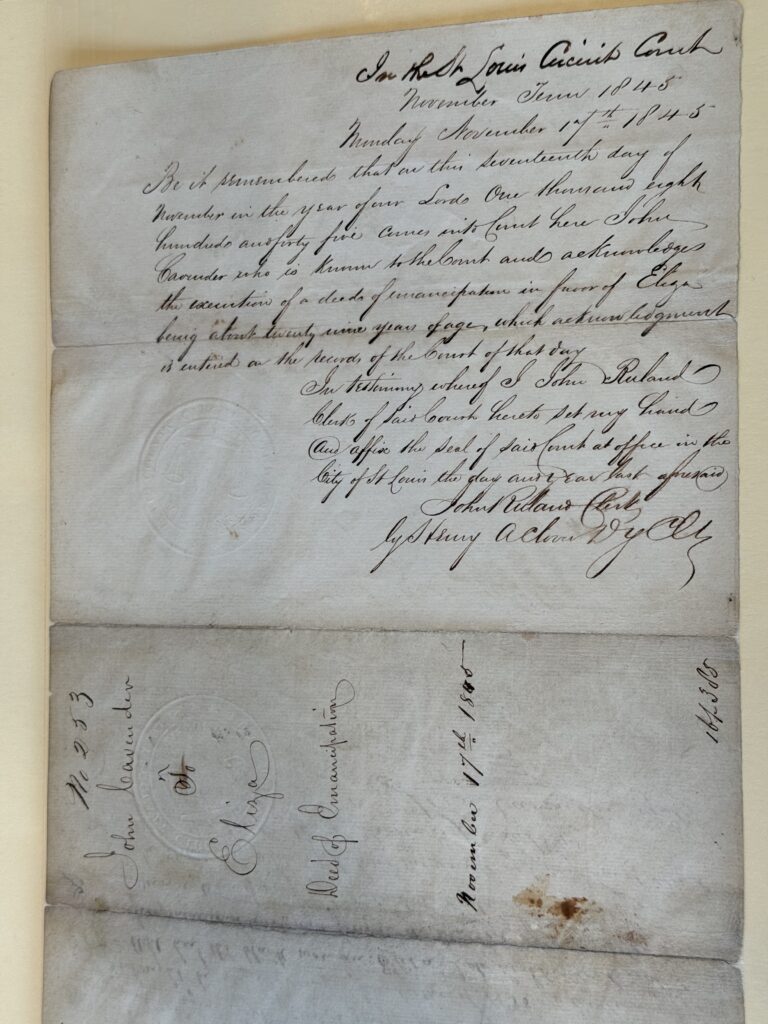 In the St Louis Circuit Court
November Term 1845
Monday November 17th 1845
Be it remembered that on this seventeenth day of
November in the year of our Lord One thousand eight
hundred and forty five comes into Court here John
Cavender who is known to the Court and acknowledges
the execution of a deed of emancipation in favor of Eliza
being about twenty nine years of age, which acknowledgment
is entered on the records of the Court of that day
In testimony whereof I John Ruland
Clerk of said Court hereto set my hand
and affix the seal of said Court at office in the
City of St Louis the day and year last aforesaid
John Ruland Clerk
by Henry A Clover Dy Clk
No 253
John Cavender
To
Eliza
Deed of Emancipation
November 17th 1845